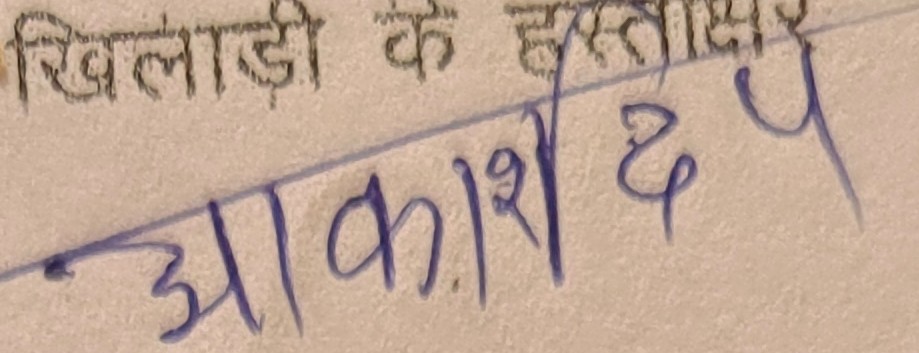 खिलाड़ी के हस्ताक्षर
आकाशदीप